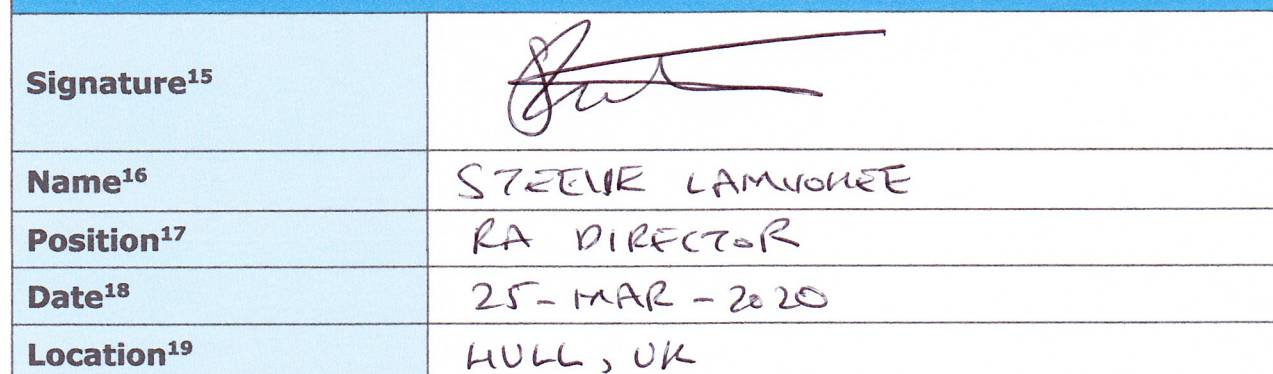 Signature¹⁵
Name¹⁶ STEEVE LAMVOHEE
Position¹⁷ RA DIRECTOR
Date¹⁸ 25-MAR-2020
Location¹⁹ HULL, UK